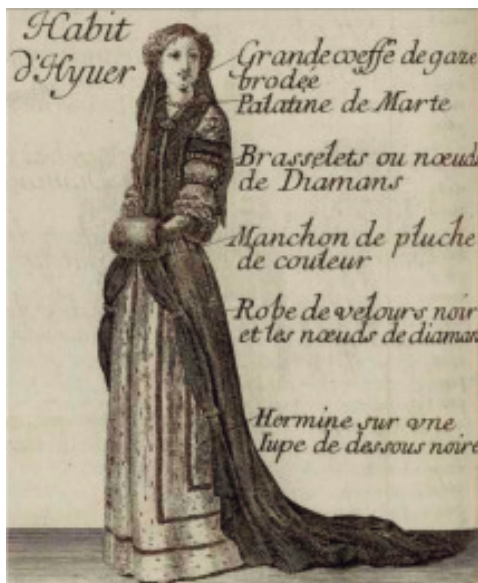 Habit
d'Hyuer
Grande coeffe de gaze
brodée
Palatine de Marte
Brasselets ou nœuds
de Diamans
Manchon de pluche
de couleur
Robe de velours noir
et les nœuds de diamans
Hermine sur vne
Iupe de dessous noire